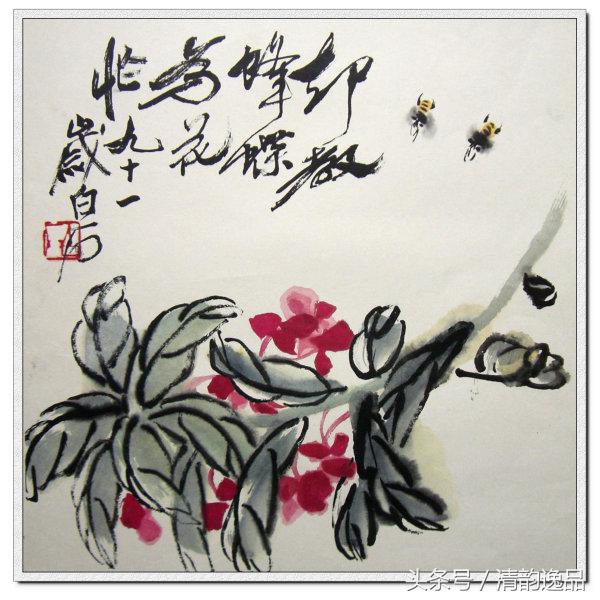 却教
蜂蝶
為花
忙九十一
歲白石
头条号 / 清韵逸品